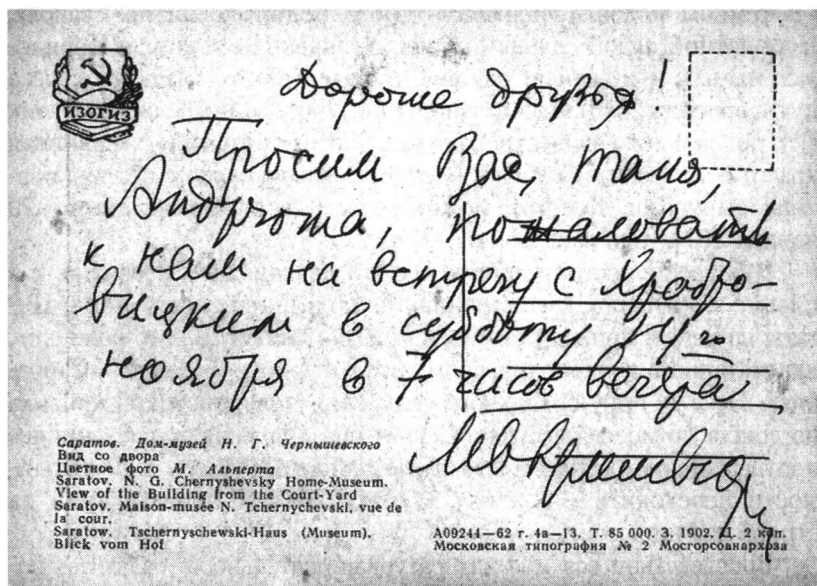 ИЗОГИЗ
Дорогие друзья!
Просим Вас, Таня,
Андрюша, пожаловать
к нам на встречу с Храбро-
вицким в субботу 14го
ноября в 7 часов вечера
Саратов. Дом-музей Н. Г. Чернышевского
Вид со двора
Цветное фото М. Альперта
Saratov. N. G. Chernyshevsky Home-Museum.
View of the Building from the Court-Yard
Saratov. Maison-musée N. Tchernychevski, vue de
la cour.
Saratow. Tschernyschewski-Haus (Museum).
Blick vom Hof
А09244—62 г. 4а—13. Т. 85 000. З. 1902. Ц. 2 коп.
Московская типография № 2 Мосгорсовнархоза